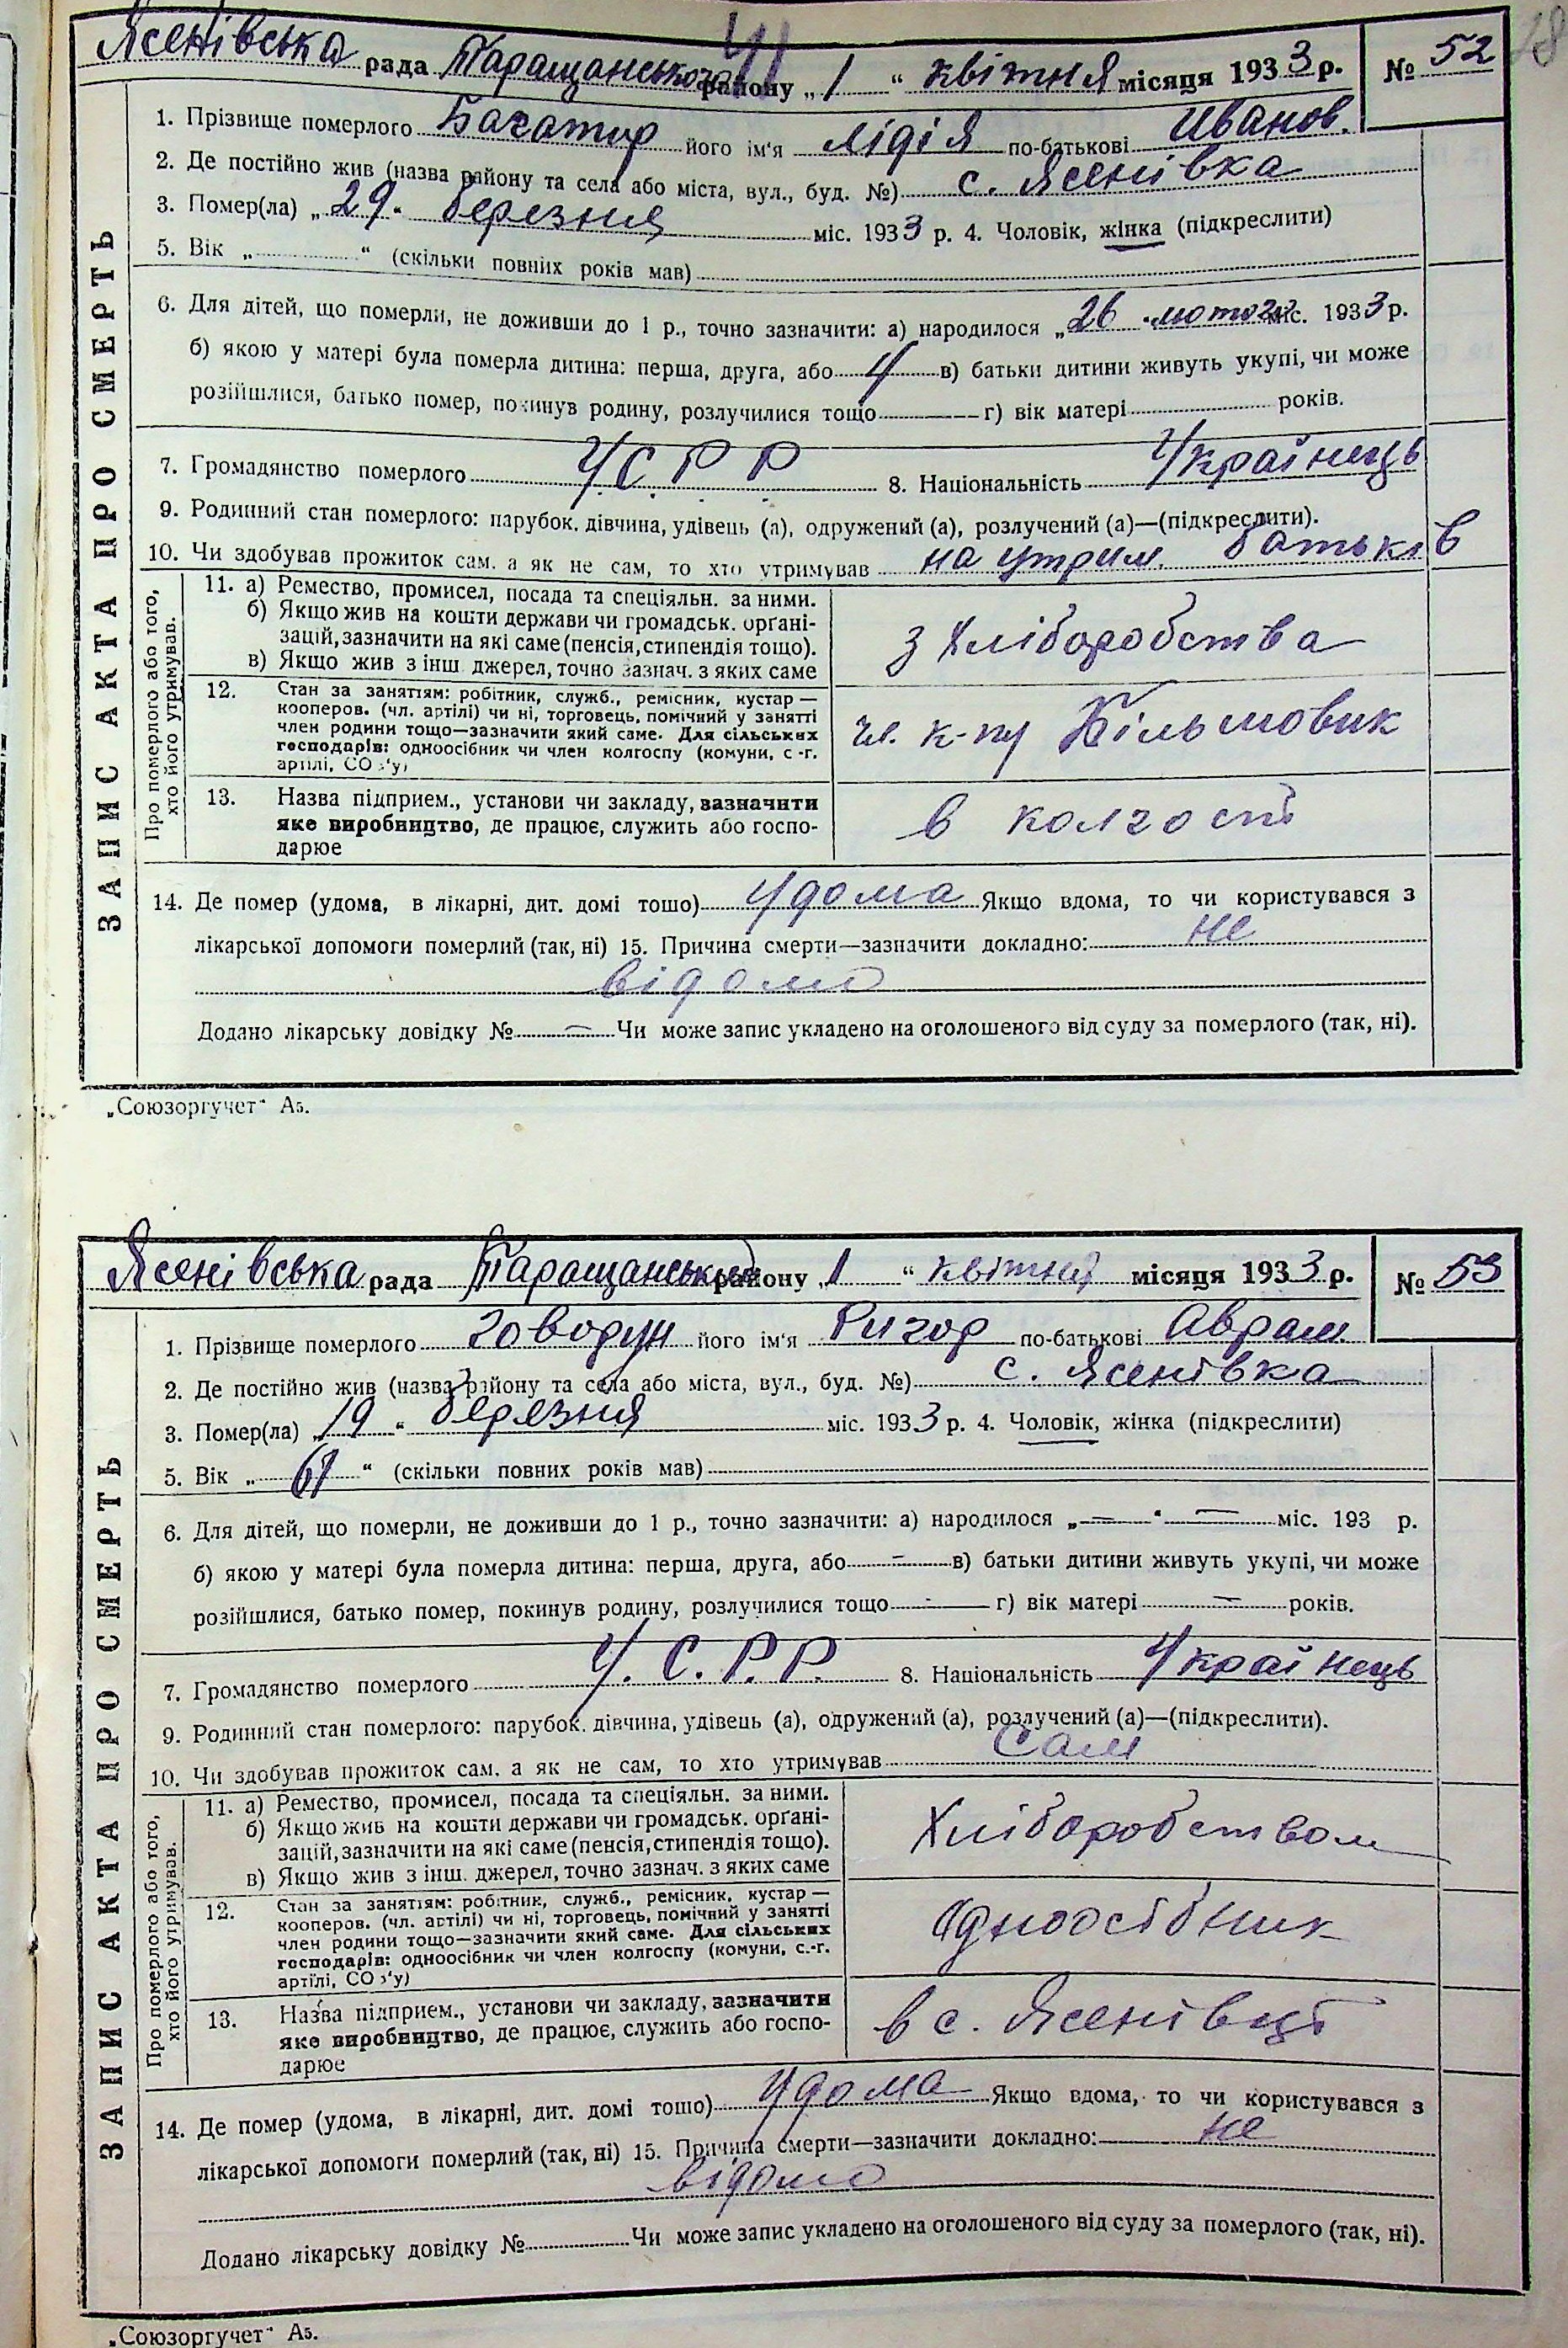 Ясенівська рада Таращанського району „1“ квітня місяця 1933 р. № 52
18
ЗАПИС АКТА ПРО СМЕРТЬ
1. Прізвище померлого Багатир його ім'я Лідія по-батькові Иванов.
2. Де постійно жив (назва району та села або міста, вул., буд. №) с. Ясенівка
3. Помер(ла) „29“ березня міс. 1933 р. 4. Чоловік, жінка (підкреслити)
5. Вік „ “ (скільки повних років мав)
6. Для дітей, що померли, не доживши до 1 р., точно зазначити: а) народилося „26“ лютого міс. 1933 р.
б) якою у матері була померла дитина: перша, друга, або 4 в) батьки дитини живуть укупі, чи може
розійшлися, батько помер, покинув родину, розлучилися тощо — г) вік матері років.
7. Громадянство померлого У.С.Р.Р 8. Національність Українець
9. Родинний стан померлого: парубок, дівчина, удівець (а), одружений (а), розлучений (а)—(підкреслити).
10. Чи здобував прожиток сам, а як не сам, то хто утримував на утрим. батьків
Про померлого або того, хто його утримував.
11. а) Ремество, промисел, посада та спеціяльн. за ними.
б) Якщо жив на кошти держави чи громадськ. орґані-
зацій, зазначити на які саме (пенсія, стипендія тощо).
в) Якщо жив з інш. джерел, точно зазнач. з яких саме
з Хліборобства
12. Стан за заняттям: робітник, служб., ремісник, кустар —
кооперов. (чл. артілі) чи ні, торговець, помічний у занятті
член родини тощо—зазначити який саме. Для сільських
господарів: одноосібник чи член колгоспу (комуни, с.-г.
артілі, СОЗ'у)
чл. к-пу Більшовик
13. Назва підприєм., установи чи закладу, зазначити
яке виробництво, де працює, служить або госпо-
дарює
в колгоспі
14. Де помер (удома, в лікарні, дит. домі тощо) Удома Якщо вдома, то чи користувався з
лікарської допомоги померлий (так, ні) 15. Причина смерти—зазначити докладно: не
відомо
Додано лікарську довідку № — Чи може запис укладено на оголошеного від суду за померлого (так, ні).
„Союзоргучет“ А5.
Ясенівська рада Таращанський району „1“ квітня місяця 1933 р. № 53
ЗАПИС АКТА ПРО СМЕРТЬ
1. Прізвище померлого Говодун його ім'я Ригор по-батькові Аврам.
2. Де постійно жив (назва району та села або міста, вул., буд. №) с. Ясенівка
3. Помер(ла) „19“ березня міс. 1933 р. 4. Чоловік, жінка (підкреслити)
5. Вік „61“ (скільки повних років мав)
6. Для дітей, що померли, не доживши до 1 р., точно зазначити: а) народилося „—“ — міс. 193 р.
б) якою у матері була померла дитина: перша, друга, або — в) батьки дитини живуть укупі, чи може
розійшлися, батько помер, покинув родину, розлучилися тощо — г) вік матері — років.
7. Громадянство померлого У.С.Р.Р. 8. Національність Українець
9. Родинний стан померлого: парубок, дівчина, удівець (а), одружений (а), розлучений (а)—(підкреслити).
10. Чи здобував прожиток сам, а як не сам, то хто утримував Сам
Про померлого або того, хто його утримував.
11. а) Ремество, промисел, посада та спеціяльн. за ними.
б) Якщо жив на кошти держави чи громадськ. орґані-
зацій, зазначити на які саме (пенсія, стипендія тощо).
в) Якщо жив з інш. джерел, точно зазнач. з яких саме
Хліборобством
12. Стан за заняттям: робітник, служб., ремісник, кустар —
кооперов. (чл. артілі) чи ні, торговець, помічний у занятті
член родини тощо—зазначити який саме. Для сільських
господарів: одноосібник чи член колгоспу (комуни, с.-г.
артілі, СОЗ'у)
Одноосібник
13. Назва підприєм., установи чи закладу, зазначити
яке виробництво, де працює, служить або госпо-
дарює
в с. Ясенівці
14. Де помер (удома, в лікарні, дит. домі тощо) Удома Якщо вдома, то чи користувався з
лікарської допомоги померлий (так, ні) 15. Причина смерти—зазначити докладно: не
відомо
Додано лікарську довідку № Чи може запис укладено на оголошеного від суду за померлого (так, ні).
„Союзоргучет“ А5.